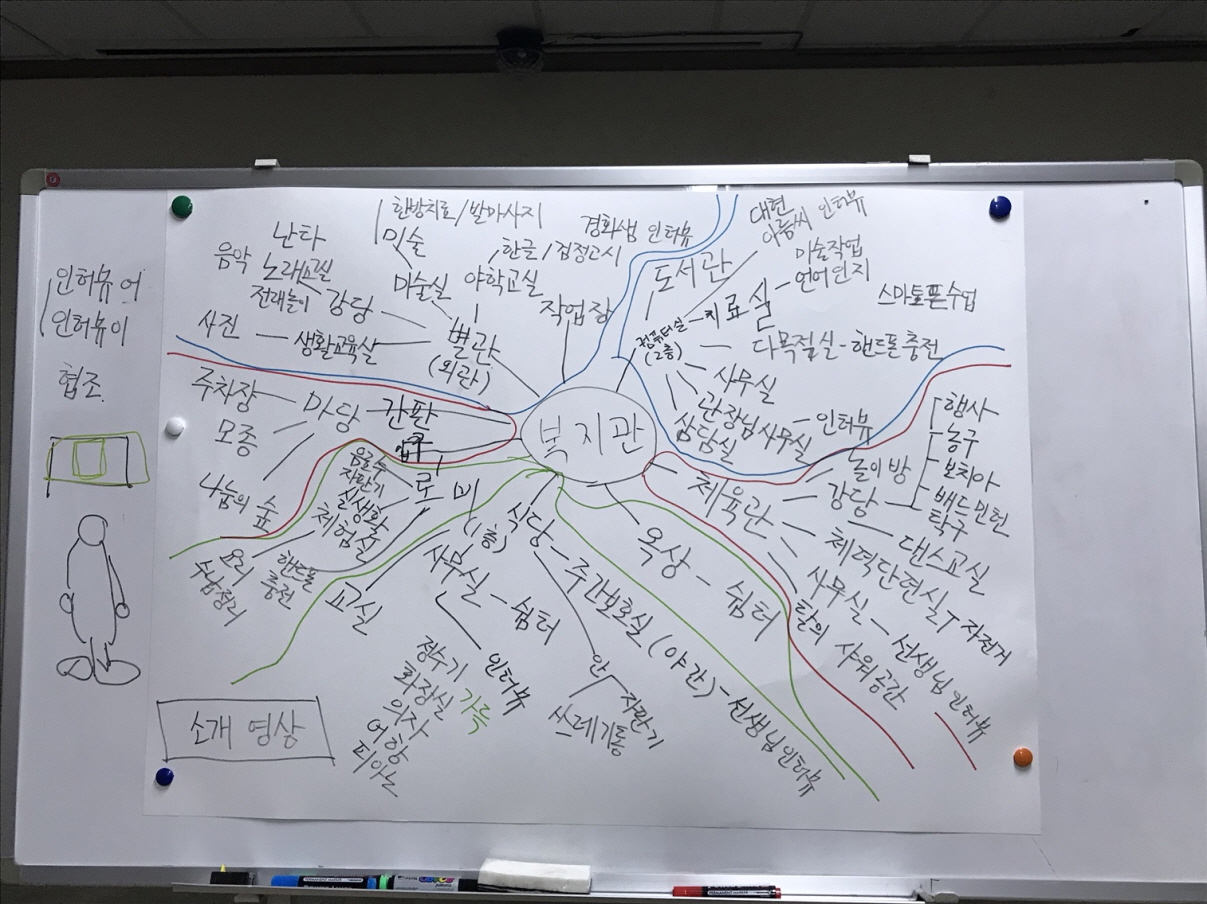 인허뷰어
인허뷰이
협조
한방치료/발마사지
미술
미술실
난타
음악
노래교실
전래놀이
강당
사진
생활교육실
별관
(외관)
한글/검정고시
야학교실
작업장
경화샘 인터뷰
대현
아름씨 인터뷰
도서관
미술작업
언어인지
스마트폰수업
컴퓨터실
(2층)
치료실
다목적실-핸드폰충전
사무실
관장님사무실-인터뷰
상담실
복지관
주차장
마당
간판
모종
나눔의 숲
입구
로비
(1층)
음료수
자판기
실생활
체험실
요리
수납정리
핸드폰
충전
교실
사무실-쉼터
인터뷰
정수기
화장실 가득
의자
어항
피아노
식당-주간보호실(야간)-선생님인터뷰
안
쓰레기통
자판기
옥상-쉼터
체육관
놀이방
강당
행사
농구
보치아
배드민턴
탁구
댄스교실
체력단련실
자전거
사무실-선생님 인터뷰
탈의 샤워공간
소개 영상